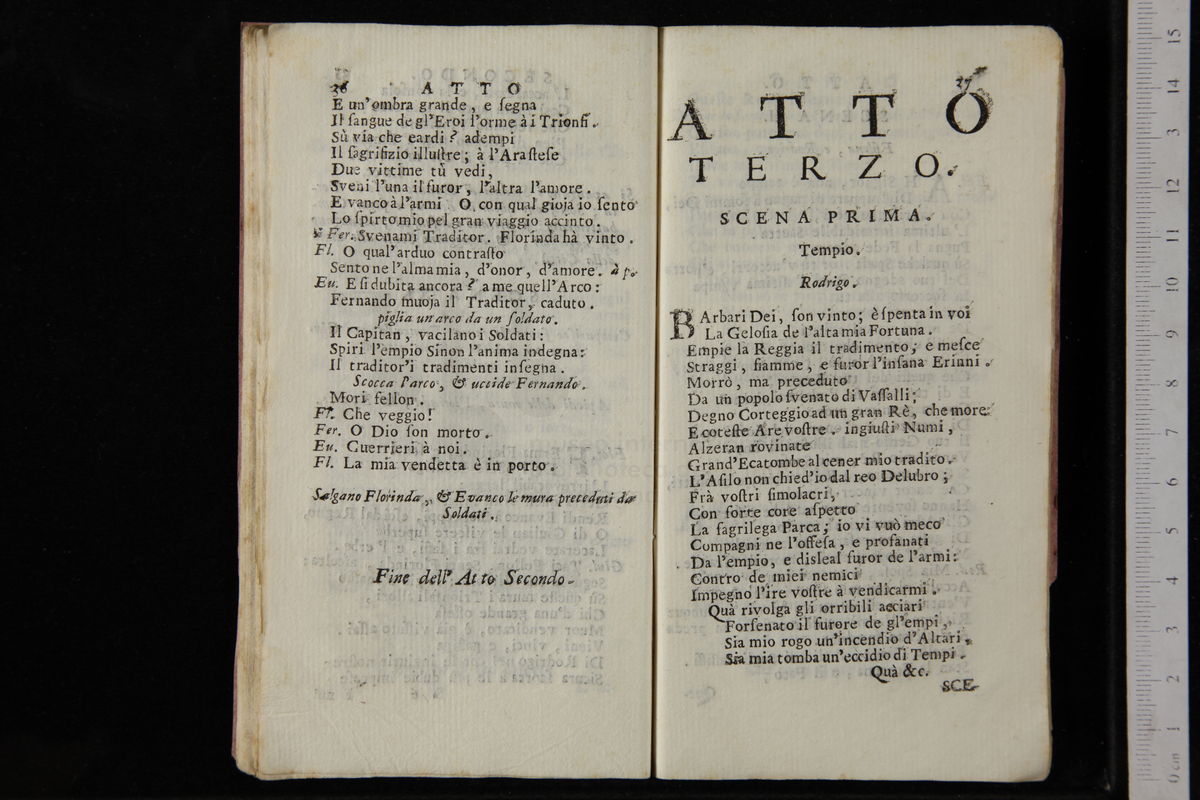 36 ATTO
E un'ombra grande, e ſegna
Il ſangue de gl'Eroi l'orme à i Trionfi.
Sù via che eardi? adempi
Il ſagrifizio illuſtre; à l'Araſteſe
Due vittime tù vedi,
Sveni l'una il furor, l'altra l'amore.
E vanco à l'armi O, con qual gioja io ſento
Lo ſpirto mio pel gran viaggio accinto.
Fer. Svenami Traditor. Florinda hà vinto.
Fl. O qual'arduo contraſto
Sento ne l'alma mia, d'onor, d'amore. à p.
Eu. E ſi dubita ancora? a me quell'Arco:
Fernando muoja il Traditor, caduto.
piglia un'arco da un ſoldato.
Il Capitan, vacilano i Soldati:
Spiri l'empio Sinon l'anima indegna:
Il traditor'i tradimenti inſegna.
Scocca l'arco, & uccide Fernando.
Mori fellon.
Fl. Che veggio!
Fer. O Dio ſon morto.
Eu. Guerrieri à noi.
Fl. La mia vendetta è in porto.
Salgano Florinda, & Evanco le mura preceduti da
Soldati.
Fine dell' At to Secondo.
37
ATTO
TERZO.
SCENA PRIMA.
Tempio.
Rodrigo.
BArbari Dei, ſon vinto; è ſpenta in voi
La Geloſia de l'alta mia Fortuna.
Empie la Reggia il tradimento, e meſce
Straggi, fiamme, e furor l'inſana Erinni.
Morrò, ma preceduto
Da un popolo ſvenato di Vaſſalli;
Degno Corteggio ad un gran Rè, che more:
E coteſte Are voſtre. ingiuſti Numi,
Alzeran rovinate
Grand'Ecatombe al cener mio tradito.
L'Aſilo non chied'io dal reo Delubro;
Frà voſtri ſimolacri,
Con forte core aſpetto
La ſagrilega Parca; io vi vuò meco
Compagni ne l'offeſa, e profanati
Da l'empio, e disleal furor de l'armi:
Contro de miei nemici
Impegno l'ire voſtre à vendicarmi.
Quà rivolga gli orribili acciari
Forſenato il furore de gl'empi,
Sia mio rogo un'incendio d'Altari,
Sia mia tomba un'eccidio di Tempi.
Quà &c.
SCE-